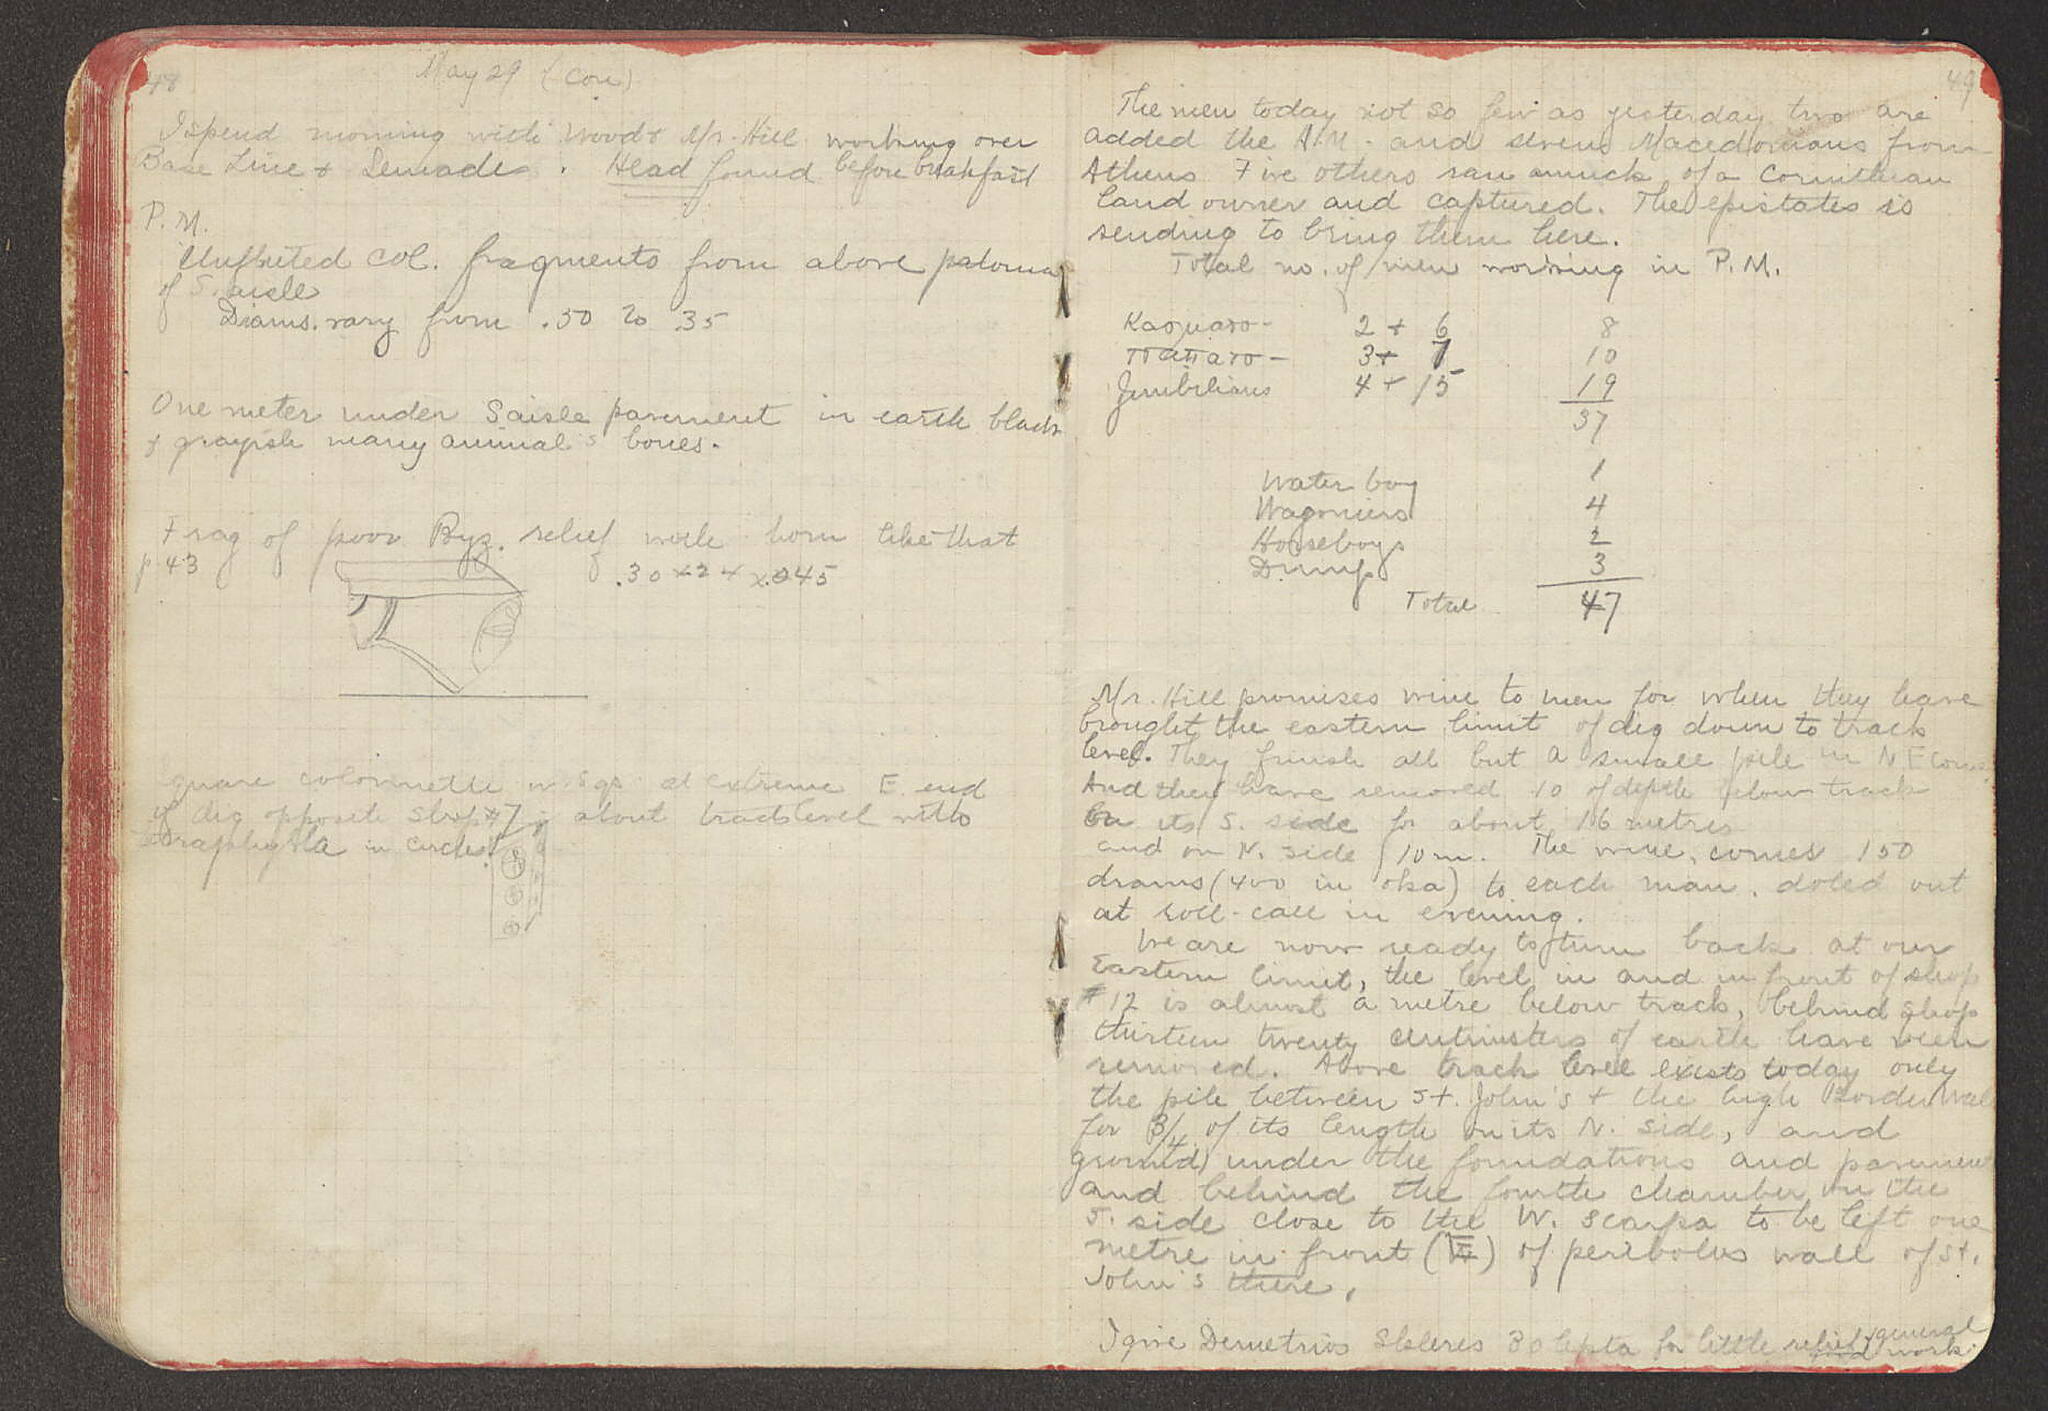 48
May 29 (Con)
I spend morning with Wood & Mr. Hill working over
Base Line & . Head found before breakfast
P.M.
Unfluted col. fragments from above patoma
of S. aisle
Diams. vary from .50 to .35
One meter under S aisle pavement in earth black
& grayish many animal's bones.
Frag of poor Byz. relief work horn like that
p 43
.30 x 24 x .045
Square colonnette w. sgs at extreme E. end
of dig opposite shop #7, about track level with
in circles.
49
The men today not so few as yesterday two are
added the A.M. and seven Macedonians from
Athens Five others ran amuck of a Corinthian
land owner and captured. The epistates is
sending to bring them here.
Total no. of men working in P.M.
2 + 6 8
3 + 7 10
Zembilians 4 + 15 19
37
Water boy 1
Wagoniers 4
Horseboys 2
Dump 3
Total 47
Mr. Hill promises wine to men for when they have
brought the eastern limit of dig down to track
level. They finish all but a small pile in N E
And they have removed 10 of depth below track
on its S. side for about 16 metres
and on N. side 10 m. The wine, comes 150
drams (400 in oka) to each man, doled out
at roll-call in evening.
We are now ready to turn back at our
Eastern limit, the level in and in front of shop
#12 is almost a metre below track, behind shop
thirteen twenty centimeters of earth have been
removed. Above track level exists today only
the pile between St. John's + the high Border Wall
for 3/4 of its length on its N. side, and
ground under the foundations and pavement
and behind the fourth chamber on the
S. side close to the W. scarpa to be left one
metre in front of peribolus wall of St.
John's there.
I give Demetrios 30 lepta for little relief & general
work.